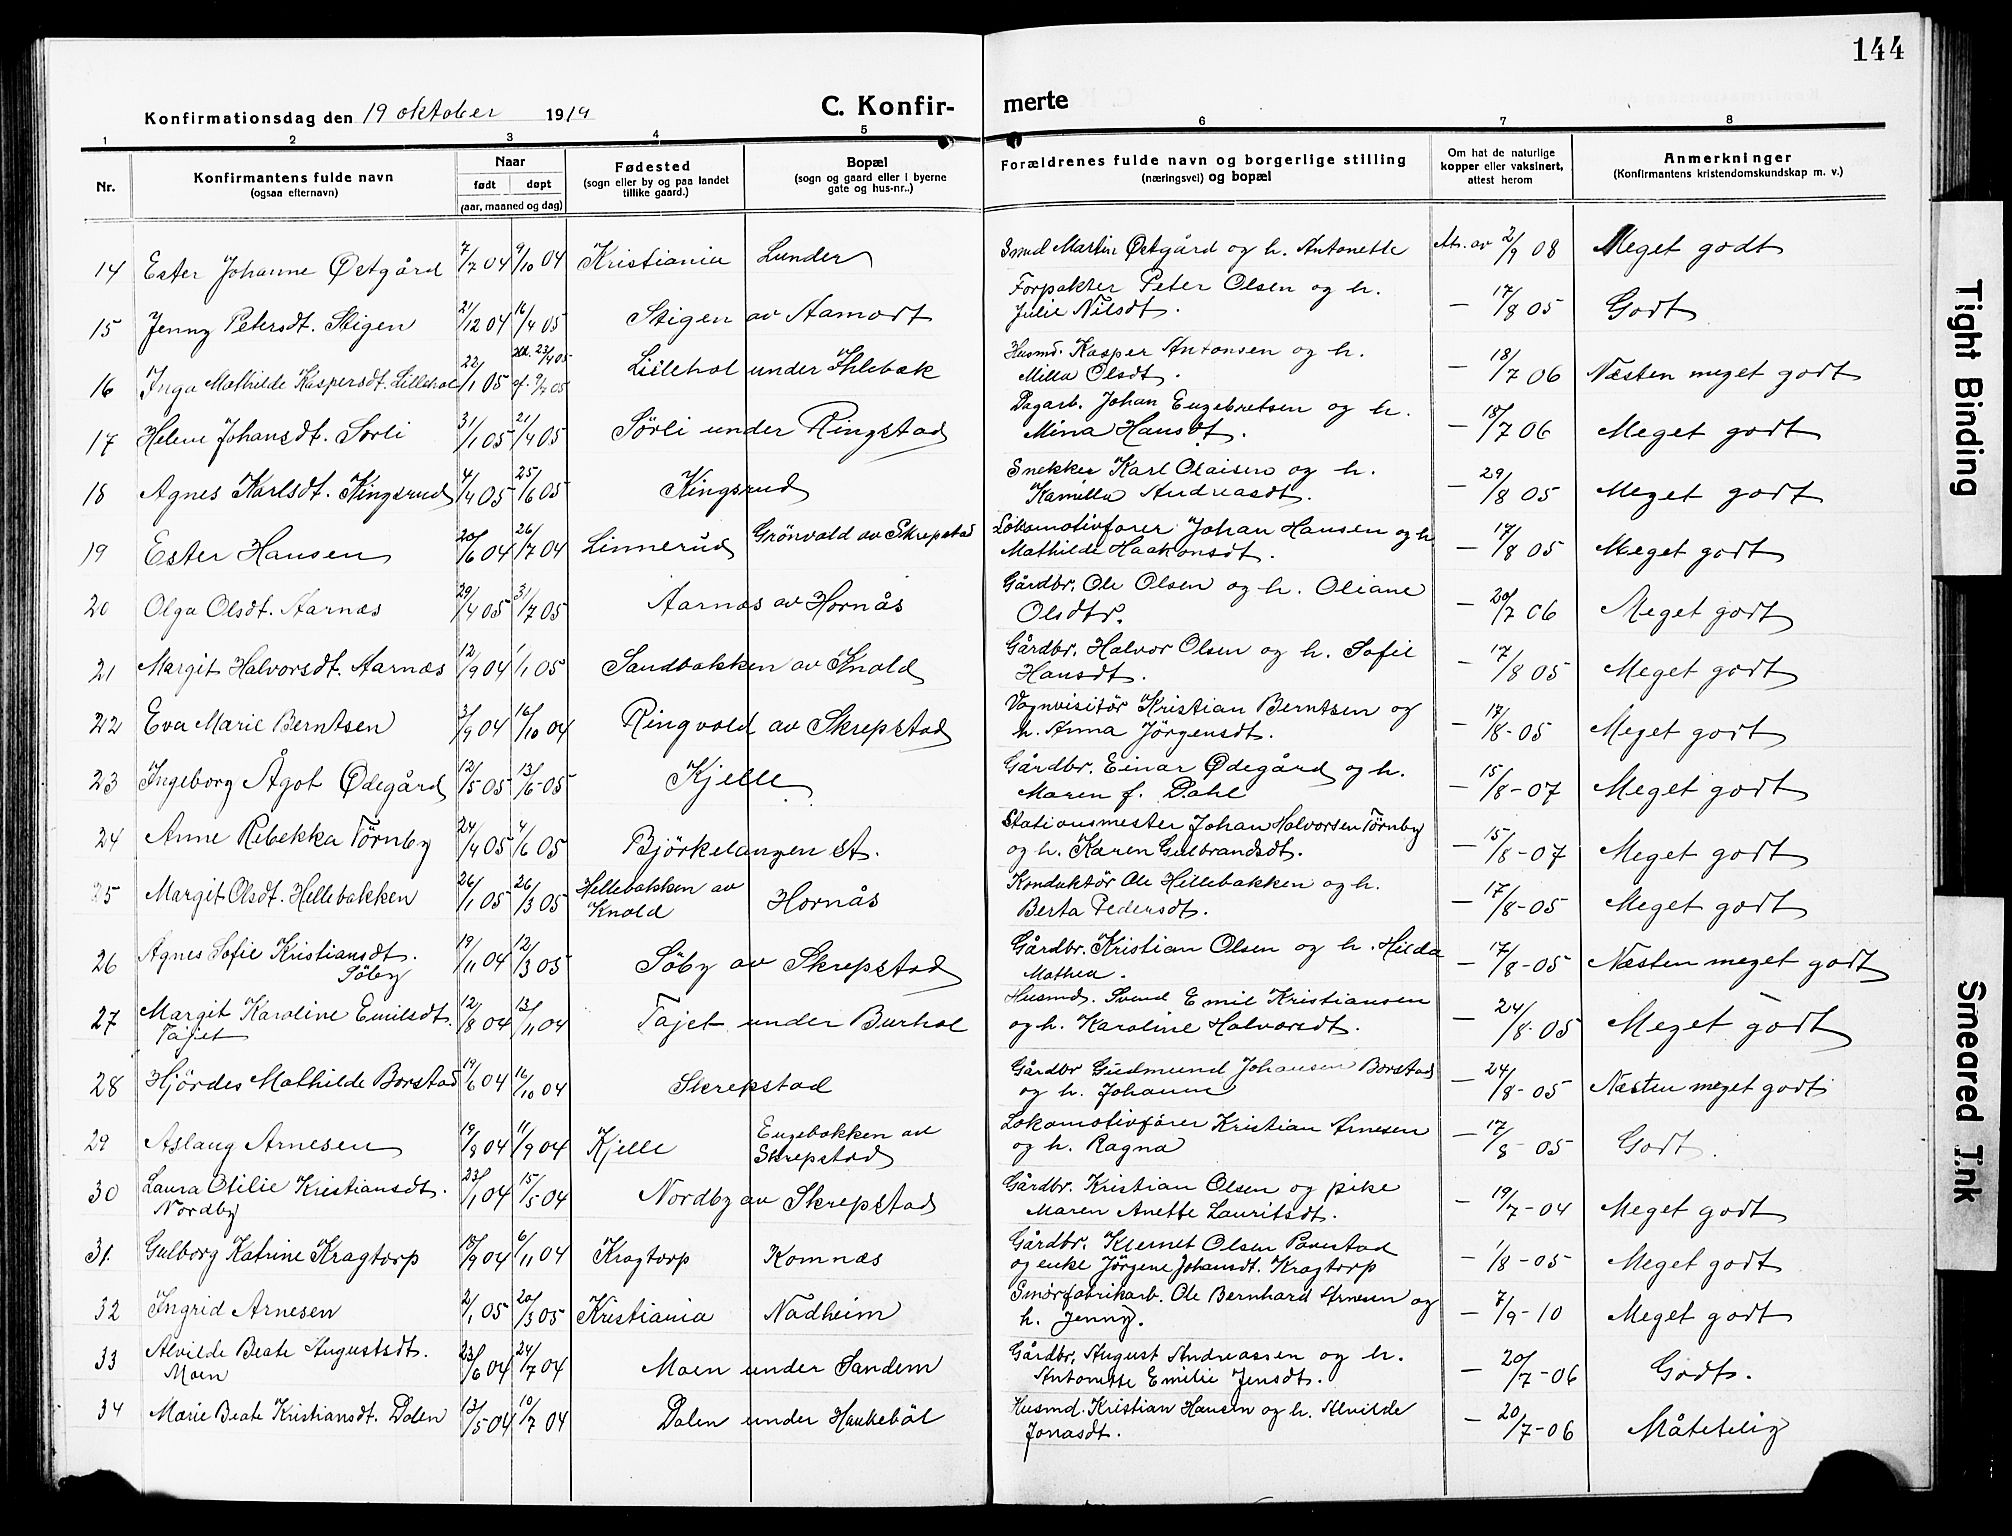 144
Konfirmationsdag den 19 oktober 1919
C. Konfir-
merte
1 2 3 4 5 6 7 8
Nr.
Konfirmantens fulde navn
(ogsaa efternavn)
Naar
født døpt
(aar, maaned og dag)
Fødested
(sogn eller by og paa landet
tillike gaard.)
Bopæl
(sogn og gaard eller i byerne
gate og hus-nr..)
Forældrenes fulde navn og borgerlige stilling
(næringsvei) og bopæl
Om hat de naturlige
kopper eller vaksinert,
attest herom
Anmerkninger
(Konfirmantens kristendomskundskap m. v.)
14 Ester Johanne Østgård 7/7 04 9/10 04 Kristiania Lunder Smed Martin Østgård og h. Antonette At. av 2/9 08 Meget godt
15 Jenny Petersdt. Stigen 21/12 04 16/4 05 Stigen av Aamodt Forpakter Peter Olsen og h.
Julie Nilsdt. — 17/8 05 Godt
16 Inga Mathilde Kaspersdt. Lillehol 22/1 05 23/4 05
of. 9/7 05 Lillehol under Ihlebæk Husmd. Kasper Antonsen og h.
Milla Olsdt. — 18/7 06 Næsten meget godt
17 Helene Johansdt. Sørli 31/1 05 21/4 05 Sørli under Ringstad Dagarb. Johan Engebretsen og h.
Mina Hansdt. — 18/7 06 Meget godt
18 Agnes Karlsdt. Kingsrud 4/4 05 25/6 05 Kingsrud Snekker Karl Olaisen og h.
Kamilla Andreasdt. — 29/8 05 Meget godt
19 Ester Hansen 20/6 04 26/7 04 Linnerud Grönvold av Skrepstad Lokomotivfører Johan Hansen og h.
Mathilde Haakonsdt. — 17/8 05 Meget godt
20 Olga Olsdt. Aarnæs 29/4 05 3/7 05 Aarnæs av Hornås Gårdbr. Ole Olsen og h. Oliane
Olsdtr. — 20/7 06 Meget godt
21 Margit Halvorsdt. Aarnæs 12/9 04 1/1 05 Sandbakken av Knold Gårdbr. Halvor Olsen og h. Sofie
Hansdt. — 17/8 05 Meget godt
22 Eva Marie Berntsen 3/9 04 16/10 04 Ringvold av Skrepstad Vognvisitör Kristian Berntsen og
h. Anna Jörgensdt. — 17/8-05 Meget godt
23 Ingeborg Ågot Ødegård 12/5-05 13/6-05 Kjelle Gårdbr. Einar Ødegård og h.
Maren f. Dahl — 15/8-07 Meget godt
24 Anne Rebekka Törnby 24/4 05 4/6 05 Björkelangen st. Stationsmester Johan Halvorsen Törnby
og h. Karen Gulbrandsdt. — 15/8-07 Meget godt
25 Margit Olsdt. Hellebakken 26/1 05 26/3 05 Hellebakken av
Knold Hornås Konduktör Ole Hellebakken og h.
Berta Pedersdt. — 17/8-05 Meget godt
26 Agnes Sofie Kristiansdt.
Söby 19/11 04 12/3 05 Söby av Skrepstad Gårdbr. Kristian Olsen og h. Hilda
Mathea. — 17/8-05 Næsten meget godt
27 Margit Karoline Emilsdt.
Tajet 12/8 04 13/11 04 Tajet under Burhol Husmd. Svend Emil Kristiansen
og h. Karoline Halvorsdt. — 24/8-05 Meget godt
28 Hjördes Mathilde Borstad 19/6 04 16/10 04 Skrepstad Gårdbr Gudmund Johansen Borstad
og h. Johanne — 24/8-05 Næsten meget godt
29 Aslaug Arnesen 19/8 04 11/9 04 Kjelle Engebakken av
Skrepstad Lokomotivfører Kristian Arnesen
og h. Ragna — 17/8-05 Godt.
30 Laura Otilie Kristiansdt.
Nordby 23/1 04 15/5 04 Nordby av Skrepstad Gårdbr. Kristian Olsen og pike
Maren Anette Lauritsdt. — 19/7-04 Meget godt
31. Gulborg Katrine Kragtorp 13/9 04 6/11 04 Kragtorp Komnæs Gårdbr. Klemet Olsen
og enke Jörgene Johansdt. Kragtorp — 1/8-05 Meget godt
32 Ingrid Arnesen 2/1 05 20/3 05 Kristiania Nadheim Smörfabrikarb. Ole Bernhard Arnesen og
h. Jenny. — 7/9-10 Meget godt
33 Alvilde Beate Augustsdt.
Moen 23/6 04 24/7 04 Moen under Sandem Gårdbr. August Andreassen og h.
Antonette Emilie Jensdt. — 20/7-06 Godt.
34 Marie Beate Kristiansdt. Dalen 13/5-04 10/7 04 Dalen under Haukeböl Husmd. Kristian Hansen og h. Alvilde
Jonasdt. — 20/7-06 Måtelig
Tight Binding
Smeared Ink